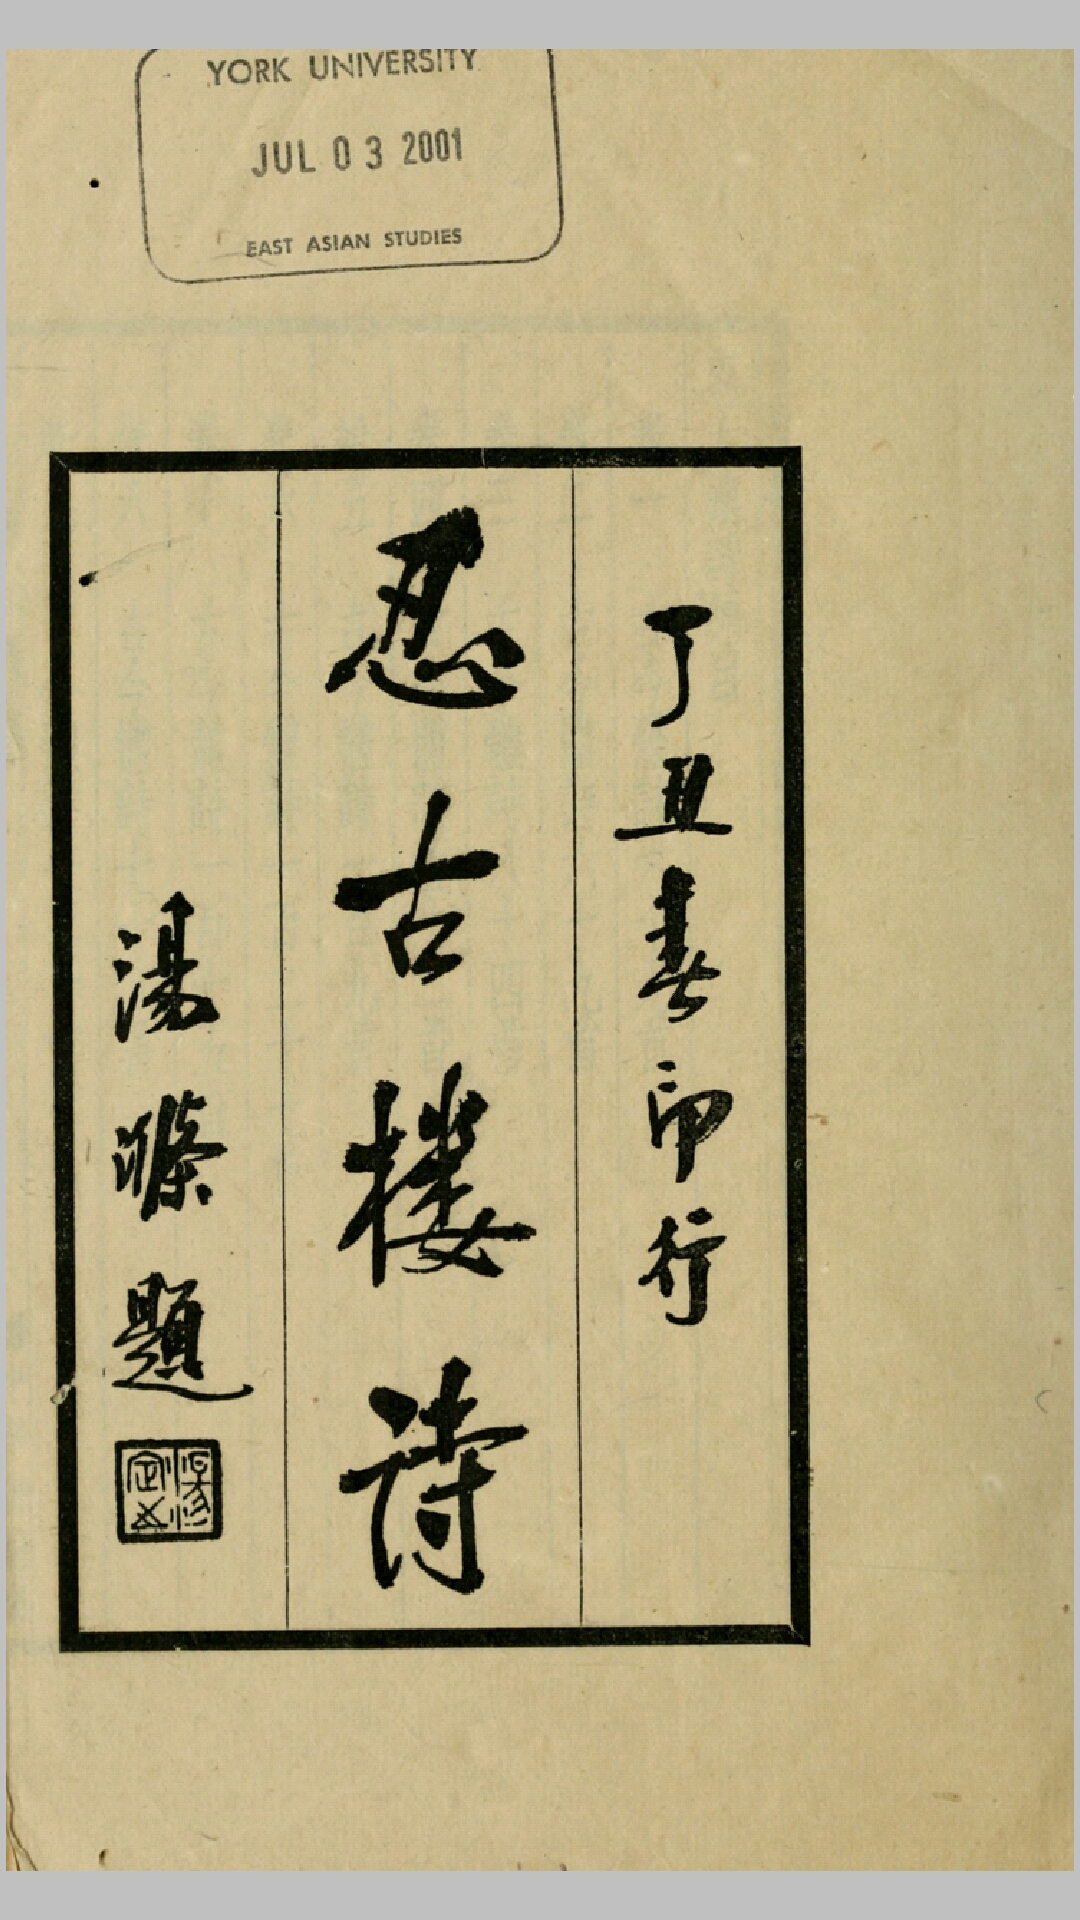 YORK UNIVERSITY
JUL 03 2001
EAST ASIAN STUDIES
丁丑春印行
忍古樓詩
湯滌題